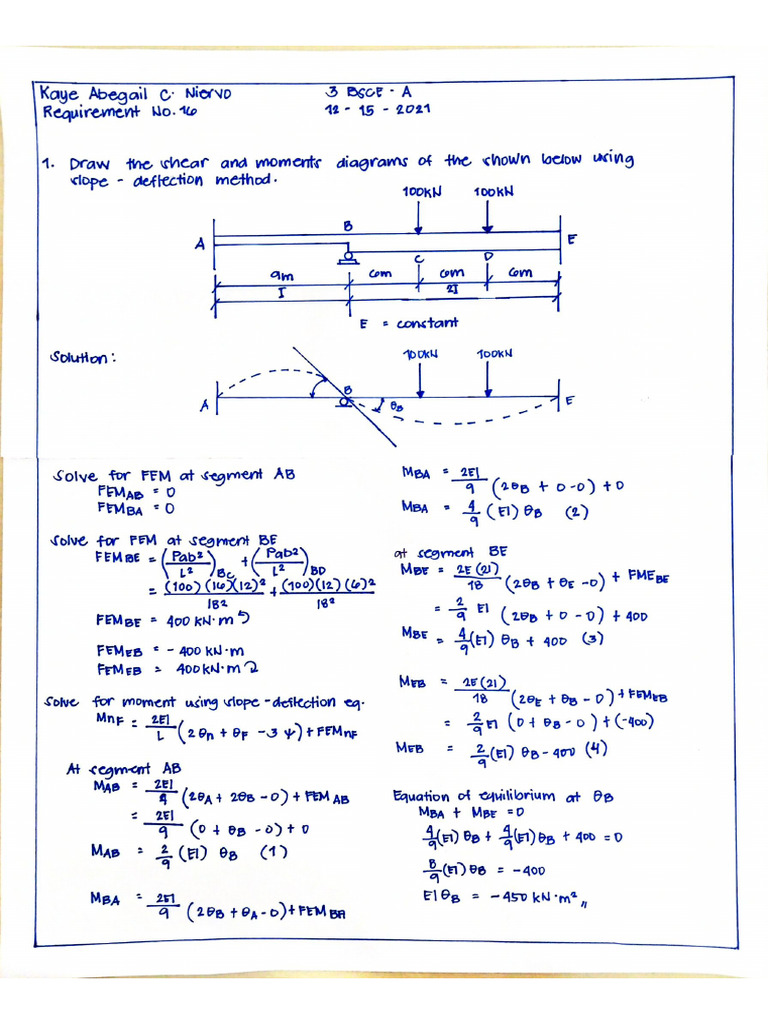 Kaye Abegail C. Niervo 3 BSCE - A
Requirement No. 16 12 - 15 - 2021
1. Draw the shear and moments diagrams of the shown below using
slope - deflection method.
100kN 100kN
B
A E
C D
9m 6m 6m 6m
I 2I
E = constant
Solution:
100kN 100kN
A B θB E
Solve for FEM at segment AB
FEMAB = 0
FEMBA = 0
Solve for FEM at segment BE
FEMBE = (Pab²/L²)BC + (Pab²/L²)BD
= (100)(6)(12)²/18² + (100)(12)(6)²/18²
FEMBE = 400 kN·m ↺
FEMEB = - 400 kN·m
FEMEB = 400 kN·m ↻
Solve for moment using slope-deflection eq.
MnF = 2EI/L (2θn + θF - 3ψ) + FEMnF
At segment AB
MAB = 2EI/9 (2θA + 2θB - 0) + FEMAB
= 2EI/9 (0 + θB - 0) + 0
MAB = 2/9 (EI) θB (1)
MBA = 2EI/9 (2θB + θA - 0) + FEMBA
MBA = 2EI/9 (2θB + 0 - 0) + 0
MBA = 4/9 (EI) θB (2)
at segment BE
MBE = 2E(2I)/18 (2θB + θE - 0) + FMEBE
= 2/9 EI (2θB + 0 - 0) + 400
MBE = 4/9 (EI) θB + 400 (3)
MEB = 2E(2I)/18 (2θE + θB - 0) + FEMEB
= 2/9 EI (0 + θB - 0) + (-400)
MEB = 2/9 (EI) θB - 400 (4)
Equation of equilibrium at θB
MBA + MBE = 0
4/9 (EI) θB + 4/9 (EI) θB + 400 = 0
8/9 (EI) θB = - 400
EI θB = - 450 kN·m² ,,